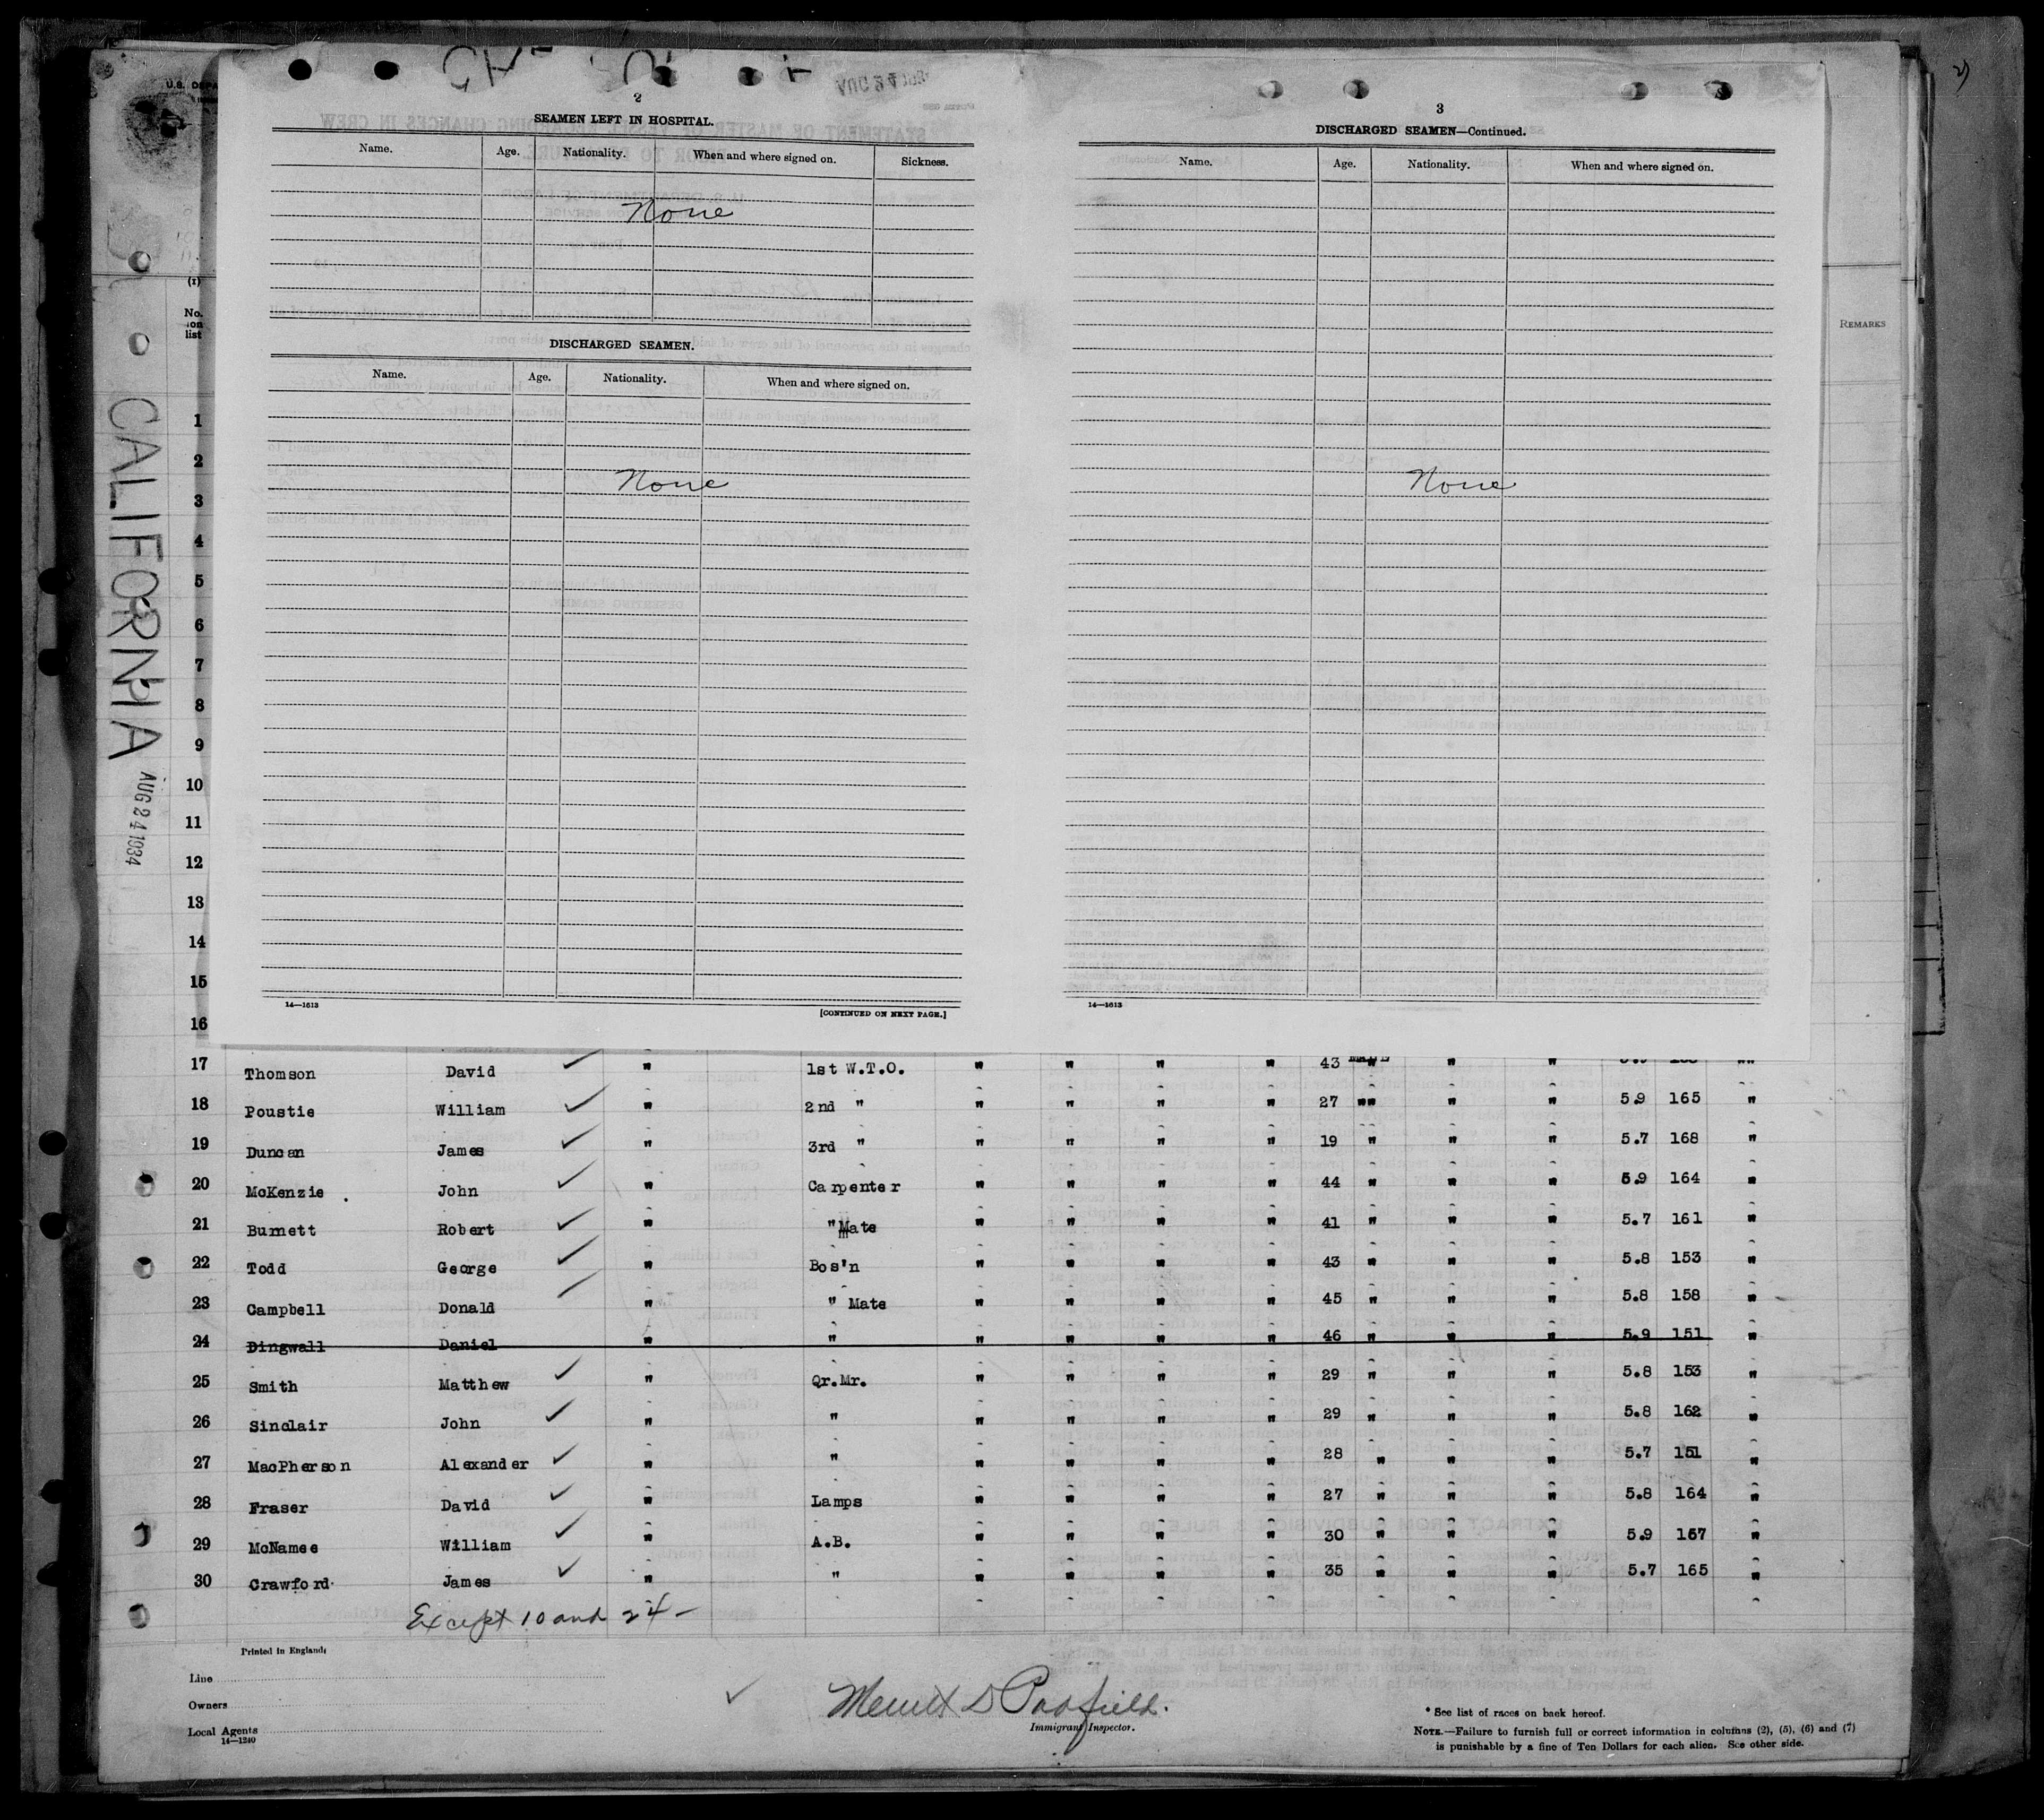 2
SEAMEN LEFT IN HOSPITAL.
Name. Age. Nationality. When and where signed on. Sickness.
None
DISCHARGED SEAMEN.
Name. Age. Nationality. When and where signed on.
None
14—1613
[CONTINUED ON NEXT PAGE.]
3
DISCHARGED SEAMEN—Continued.
Name. Age. Nationality. When and where signed on.
None
14—1613
U.S. DEPA
(1)
No.
on
list
REMARKS
CALIFORNIA
AUG 24 1934
1
2
3
4
5
6
7
8
9
10
11
12
13
14
15
16
17 Thomson David " 1st W.T.O. " " " " 43 " " "
18 Poustie William " 2nd " " " " " 27 "" " " 5.9 165 "
19 Duncan James " 3rd " " " " " 19 " " " 5.7 168 "
20 McKenzie John " Carpenter " " " " 44 " " " 5.9 164 "
21 Burnett Robert " " Mate " " " " 41 " " " 5.7 161 "
22 Todd George " Bos'n " " " " 43 " " " 5.8 153 "
23 Campbell Donald " " Mate " " " " 45 " " " 5.8 158 "
24 Dingwall Daniel " " " " " " 46 " " " 5.9 151 "
25 Smith Matthew " Qr.Mr. " " " " 29 " " " 5.8 153 "
26 Sinclair John " " " " " " 29 " " " 5.8 162 "
27 MacPherson Alexander " " " " " " 28 " " " 5.7 151 "
28 Fraser David " Lamps " " " " 27 " " " 5.8 164 "
29 McNamee William " A.B. " " " " 30 " " " 5.9 157 "
30 Crawford James " " " " " " 35 " " " 5.7 165 "
Except 10 and 24 -
Printed in England:
Line
Owners
Local Agents
14—1240
Merritt D Padfield.
Immigrant Inspector.
* See list of races on back hereof.
NOTE.—Failure to furnish full or correct information in columns (2), (5), (6) and (7)
is punishable by a fine of Ten Dollars for each alien. See other side.